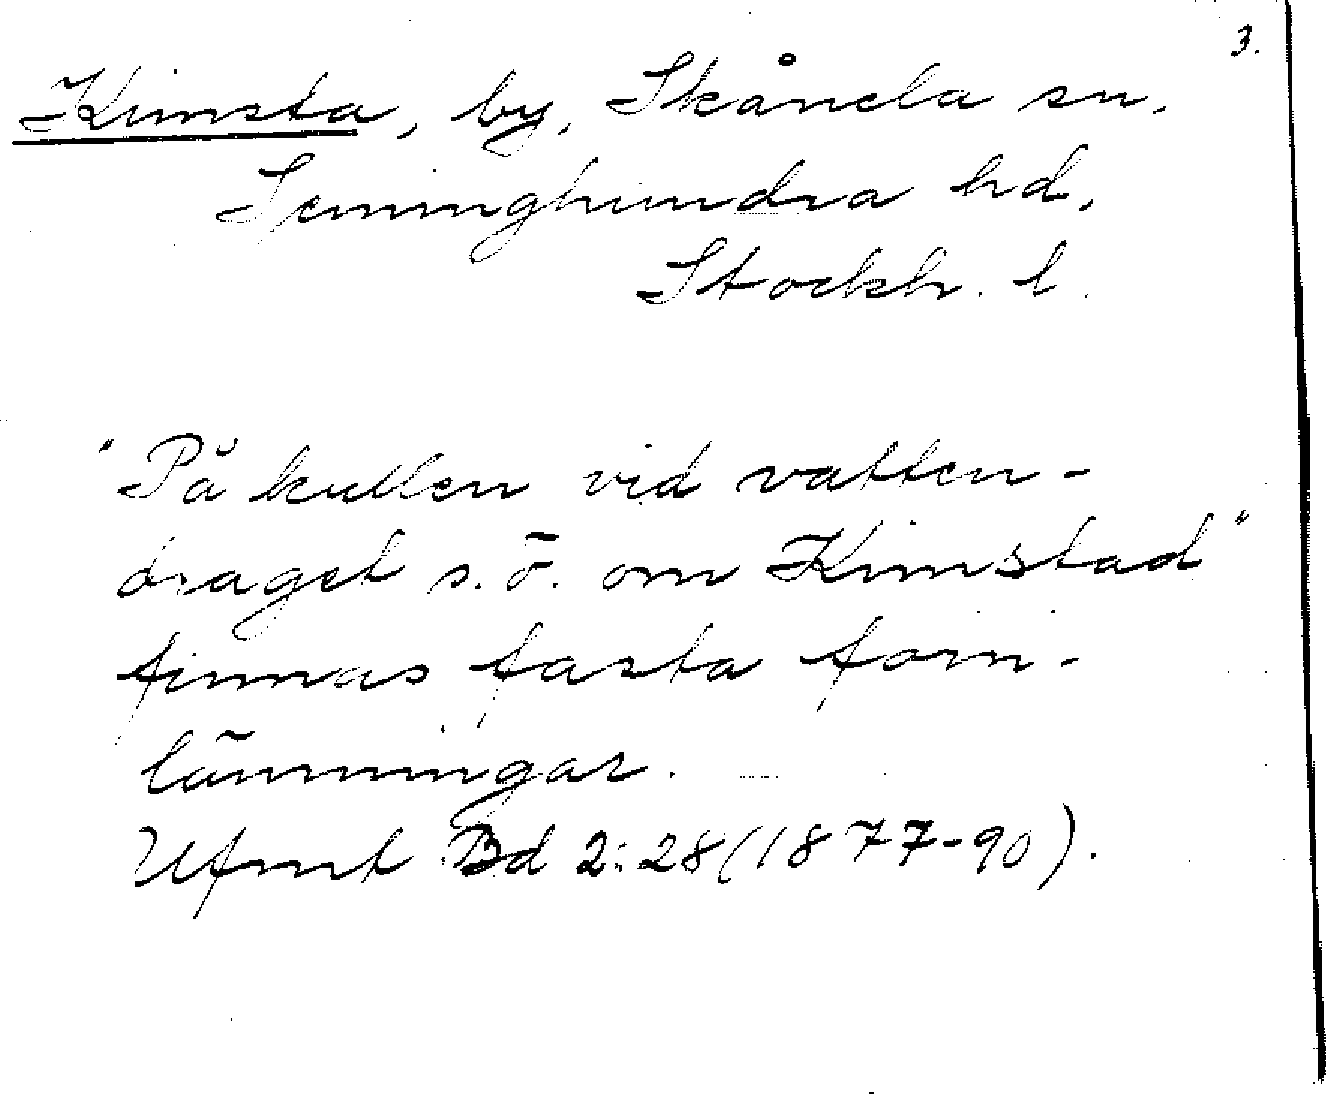 3.
Kimsta, by, Skånela sn,
Seminghundra hd,
Stockh. l.
"På kullen vid vatten-
draget s.ö. om Kimstad"
finnas fasta forn-
lämningar.
Ufmt Bd 2:28(1877-90).